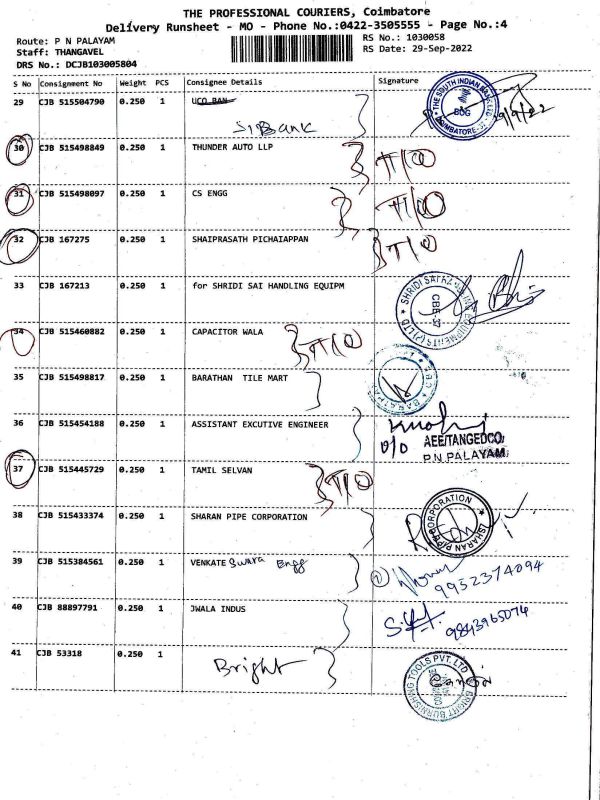 THE PROFESSIONAL COURIERS, Coimbatore
Delivery Runsheet - MO - Phone No.:0422-3505555 - Page No.:4
Route: P N PALAYAM
Staff: THANGAVEL
DRS No.: DCJB103005804
RS No.: 1030058
RS Date: 29-Sep-2022
S No Consignment No Weight PCS Consignee Details Signature
29 CJB 515504790 0.250 1 UCO BAN
SIBank
THE SOUTH INDIAN BANK LTD.
COIMBATORE
30 CJB 515498849 0.250 1 THUNDER AUTO LLP
31 CJB 515498097 0.250 1 CS ENGG
32 CJB 167275 0.250 1 SHAIPRASATH PICHAIAPPAN
33 CJB 167213 0.250 1 for SHRIDI SAI HANDLING EQUIPM
34 CJB 515460882 0.250 1 CAPACITOR WALA
35 CJB 515498817 0.250 1 BARATHAN TILE MART
36 CJB 515454188 0.250 1 ASSISTANT EXCUTIVE ENGINEER
AEE/TANGEDCO/
P.N.PALAYAM
37 CJB 515445729 0.250 1 TAMIL SELVAN
38 CJB 515433374 0.250 1 SHARAN PIPE CORPORATION
SHARAN PIPE CORPORATION
39 CJB 515384561 0.250 1 VENKATE Swara Engg
9952374094
40 CJB 88897791 0.250 1 JWALA INDUS
9843965074
41 CJB 53318 0.250 1
Bright
BRIGHT BURNISHING TOOLS PVT. LTD